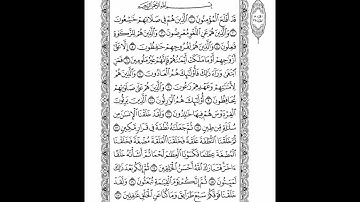 بِسْمِ اللَّهِ الرَّحْمَٰنِ الرَّحِيمِ
قَدْ أَفْلَحَ الْمُؤْمِنُونَ ۝ الَّذِينَ هُمْ فِي صَلَاتِهِمْ خَاشِعُونَ
۝ وَالَّذِينَ هُمْ عَنِ اللَّغْوِ مُعْرِضُونَ ۝ وَالَّذِينَ هُمْ لِلزَّكَاةِ
فَاعِلُونَ ۝ وَالَّذِينَ هُمْ لِفُرُوجِهِمْ حَافِظُونَ ۝ إِلَّا عَلَىٰ
أَزْوَاجِهِمْ أَوْ مَا مَلَكَتْ أَيْمَانُهُمْ فَإِنَّهُمْ غَيْرُ مَلُومِينَ ۝ فَمَنِ
ابْتَغَىٰ وَرَاءَ ذَٰلِكَ فَأُولَٰئِكَ هُمُ الْعَادُونَ ۝ وَالَّذِينَ هُمْ
لِأَمَانَاتِهِمْ وَعَهْدِهِمْ رَاعُونَ ۝ وَالَّذِينَ هُمْ عَلَىٰ صَلَوَاتِهِمْ
يُحَافِظُونَ ۝ أُولَٰئِكَ هُمُ الْوَارِثُونَ ۝ الَّذِينَ يَرِثُونَ
الْفِرْدَوْسَ هُمْ فِيهَا خَالِدُونَ ۝ وَلَقَدْ خَلَقْنَا الْإِنسَانَ مِن
سُلَالَةٍ مِّن طِينٍ ۝ ثُمَّ جَعَلْنَاهُ نُطْفَةً فِي قَرَارٍ مَّكِينٍ ۝
ثُمَّ خَلَقْنَا النُّطْفَةَ عَلَقَةً فَخَلَقْنَا الْعَلَقَةَ مُضْغَةً فَخَلَقْنَا
الْمُضْغَةَ عِظَامًا فَكَسَوْنَا الْعِظَامَ لَحْمًا ثُمَّ أَنشَأْنَاهُ خَلْقًا
آخَرَ فَتَبَارَكَ اللَّهُ أَحْسَنُ الْخَالِقِينَ ۝ ثُمَّ إِنَّكُم بَعْدَ ذَٰلِكَ
لَمَيِّتُونَ ۝ ثُمَّ إِنَّكُمْ يَوْمَ الْقِيَامَةِ تُبْعَثُونَ ۝ وَلَقَدْ
خَلَقْنَا فَوْقَكُمْ سَبْعَ طَرَائِقَ وَمَا كُنَّا عَنِ الْخَلْقِ غَافِلِينَ ۝